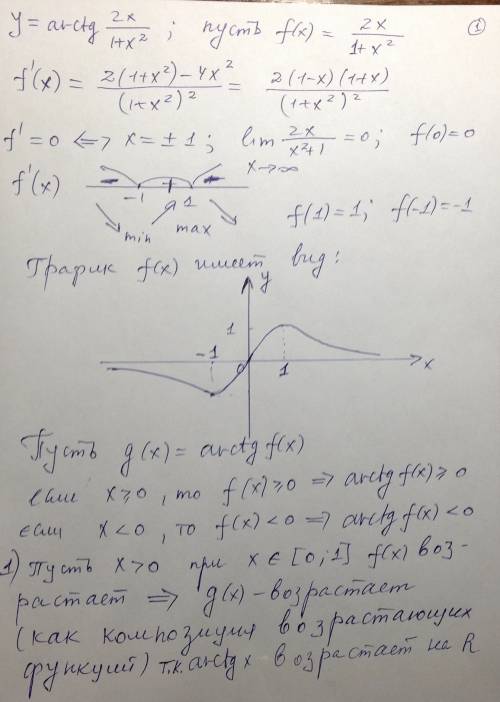 y = arctg 2x/(1+x²) ; пусть f(x) = 2x/(1+x²) ①
f'(x) = (2(1+x²)-4x²)/(1+x²)² = 2(1-x)(1+x)/(1+x²)²
f' = 0 <=> x = ± 1 ; lim x→∞ 2x/(x²+1) = 0 ; f(0) = 0
f'(x) - -1 + 1 -
min max f(1) = 1 ; f(-1) = -1
График f(x) имеет вид:
y
1
-1 0 1 x
Пусть g(x) = arctg f(x)
если x ⩾ 0, то f(x) ⩾ 0 => arctg f(x) ⩾ 0
если x < 0, то f(x) < 0 => arctg f(x) < 0
1) Пусть x > 0 при x ∈ [0;1] f(x) воз-
растает => g(x) - возрастает
(как композиция возрастающих
функций) т.к. arctg x возрастает на R